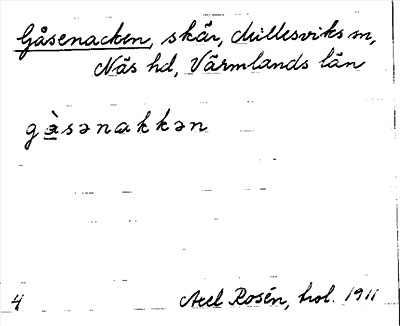 Gåsenacken, skär, Millesviks sn,
Näs hd, Värmlands län
gàsənakkən
4 Axel Rosén, hol. 1911